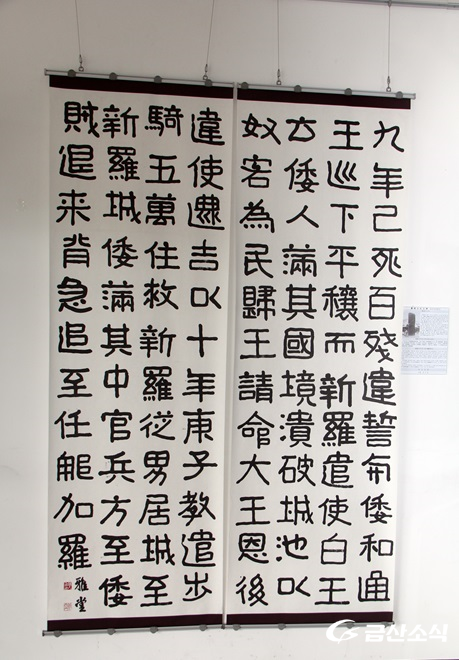 九年己亥百殘違誓与倭和通
王巡下平穰而新羅遣使白王
云倭人滿其國境潰破城池以
奴客為民歸王請命大王恩後
違使還告以十年庚子教遣步
騎五萬住救新羅從男居城至
新羅城倭滿其中官兵方至倭
賊退来背急追至任那加羅
雅堂
금산소식